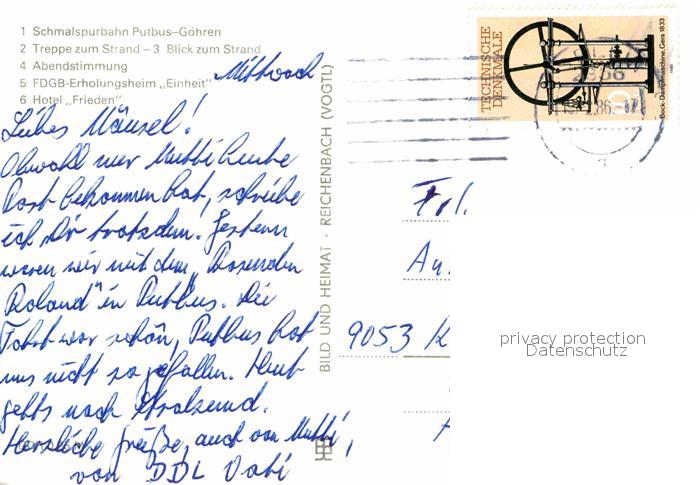 1 Schmalspurbahn Putbus–Göhren
2 Treppe zum Strand – 3 Blick zum Strand
4 Abendstimmung
5 FDGB-Erholungsheim „Einheit"
6 Hotel „Frieden"
Mittwoch
Liebes Mäusel!
Obwohl nur Mutti heute
Post bekommen hat, schreibe
ich Dir trotzdem. Gestern
waren wir mit dem „Rasenden
Roland" in Putbus. Die
Fahrt war schön, Putbus hat
uns nicht so gefallen. Heut
gehts nach Stralsund.
Herzliche Grüße, auch von Mutti,
von DDL Vati
BILD UND HEIMAT · REICHENBACH (VOGTL)
TECHNISCHE
DENKMALE
Bock-Dampfmaschine, Gera 1833
2356
86
Frl.
An.
9053 K
privacy protection
Datenschutz